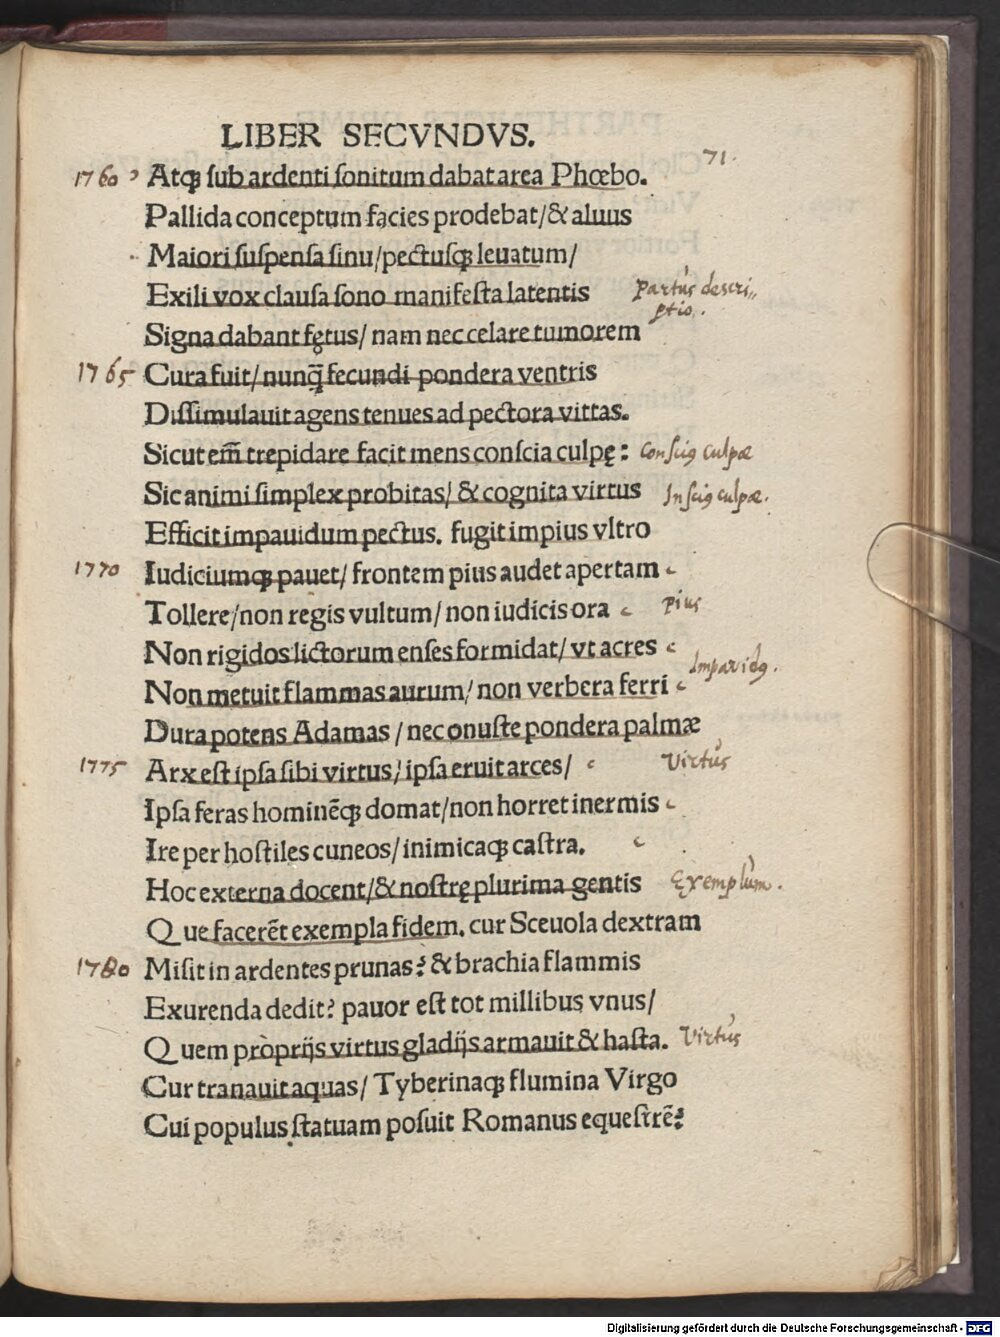 LIBER SECVNDVS.
71.
1760 Atqꝫ ſub ardenti ſonitum dabat area Phœbo.
Pallida conceptum facies prodebat/& aluus
Maiori ſuſpenſa ſinu/pectuſqꝫ leuatum/
Exili vox clauſa ſono manifeſta latentis Partus descri,,
ptio.
Signa dabant fętus/ nam nec celare tumorem
1765 Cura fuit/nunq̃ fecundi pondera ventris
Diſſimulauit agens tenues ad pectora vittas.
Sicut em̃ trepidare facit mens conſcia culpę: Conſciꝰ culpæ
Sic animi ſimplex probitas/ & cognita virtus Inſciꝰ culpæ.
Efficit impauidum pectus. fugit impius vltro
1770 Iudiciumqꝫ pauet/ frontem pius audet apertam
Tollere/non regis vultum/ non iudicis ora pius
Non rigidos lictorum enſes formidat/ vt acres
Impavidꝰ.
Non metuit flammas aurum/ non verbera ferri
Dura potens Adamas / nec onuſte pondera palmæ
1775 Arx eſt ipſa ſibi virtus/ ipſa eruit arces/ Virtus
Ipſa feras hominēqꝫ domat/non horret inermis
Ire per hoſtiles cuneos/ inimicaqꝫ caſtra.
Hoc externa docent/& noſtrę plurima gentis Exemplum.
Que facerēt exempla fidem. cur Sceuola dextram
1780 Miſit in ardentes prunas? & brachia flammis
Exurenda dedit? pauor eſt tot millibus vnus/
Quem proprijs virtus gladijs armauit & haſta. Virtus
Cur tranauit aquas/ Tyberinaqꝫ flumina Virgo
Cui populus ſtatuam poſuit Romanus equeſtrē?
Digitalisierung gefördert durch die Deutsche Forschungsgemeinschaft - DFG